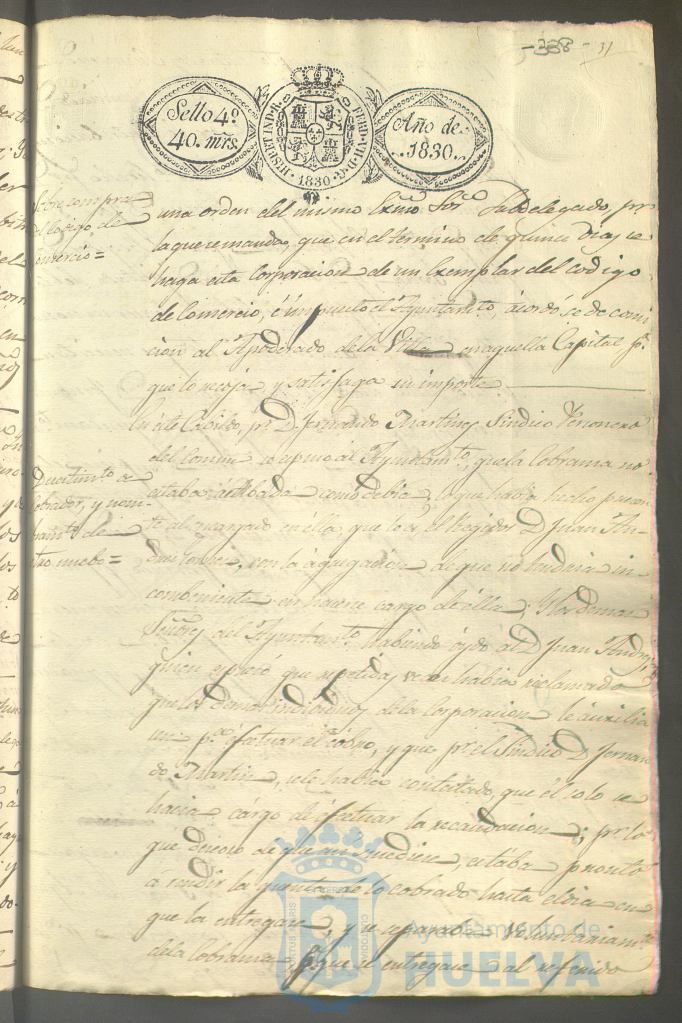 -338- 31
Sello 4º.
40. mrs.
HISPET IND. R. FERD. VII. D. G. 1830
Año de
1830.
Sobre compra
del Codigo de
Comercio=
una orden del mismo Exmo Sor. Subdelegado, pr.
la que se manda, que en el termino de quince Dias se
haga esta Corporacion de un Exemplar del codigo
de Comercio, é impuesto el Ayuntamto. acordó se de comi
cion al Apoderado de la Villa en aquella Capital pa.
que lo recoja y satisfaga su importe
En éste Cabildo, pr. D. Fernando Martin Sindico Personero
del Comun se espuso al Ayuntamto., que la Cobranza no
estaba como debia, lo que habia hecho presen
te al encargado en élla, que lo es el Regidor D. Juan An-
dres con la agregacion de que no tendria in-
combeniente en hacerse cargo de élla; Los demas
Señores del Ayuntamto. habiendo oydo al D. Juan Andres
quien espresó que repetidas veces habia reclamado
que los demas individuos de la Corporacion le auxilia
sen pa. efectuar el cobro, y que pr. el Sindico D. Fernan
do Martin, se le habia contestado, que él solo se
hacia cargo de éfectuar la recaudacion; pr. lo
que deseoso de que se, estaba pronto
a rendir la cuenta de lo cobrado hasta el dia en
que la entregase, y se separaba voluntariamte.
de la Cobranza, pa. que se entregase al referido
cobrador, y nom-
bramto. de
otro nuebo=
Ayuntamiento de
HUELVA